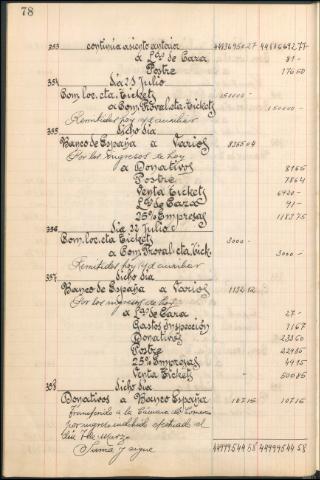 78
353 continúa asiento anterior 44836950 27 44836692 77
a Lªs de Caza 81 -
Postre 176 50
354 Día 21 Julio
Com. loc. cta. Tickets 150000 -
a Com. Proval. cta. Tickets 150000 -
Remitidos hoy s/d auxiliar
355 dicho día
Banco de España a Varios 8255 04
Por los ingresos de hoy
a Donativos
Postre 78 64
Venta Tickets 6920 -
Lªs de Caza 91 -
25% Empresas
356 Día 22 Julio
Com. loc. cta. Tickets 3000 -
a Com. Proval. cta. Tick. 3000 -
Remitidos hoy s/d auxiliar
357 dicho día
Banco de España a Varios
Por los ingresos de hoy
a Lªs de Caza 27 -
Gastos Inspección 71 67
Donativos 233 50
Postre
25% Empresas
Venta Tickets 500 85
358 dicho día
Donativos a Banco España 107 15 107 15
Transferido a la Cámara de Comercio
por ingreso indebido efectuado el
día 7 de Marzo
Suma y sigue 44999544 58 44999544 58